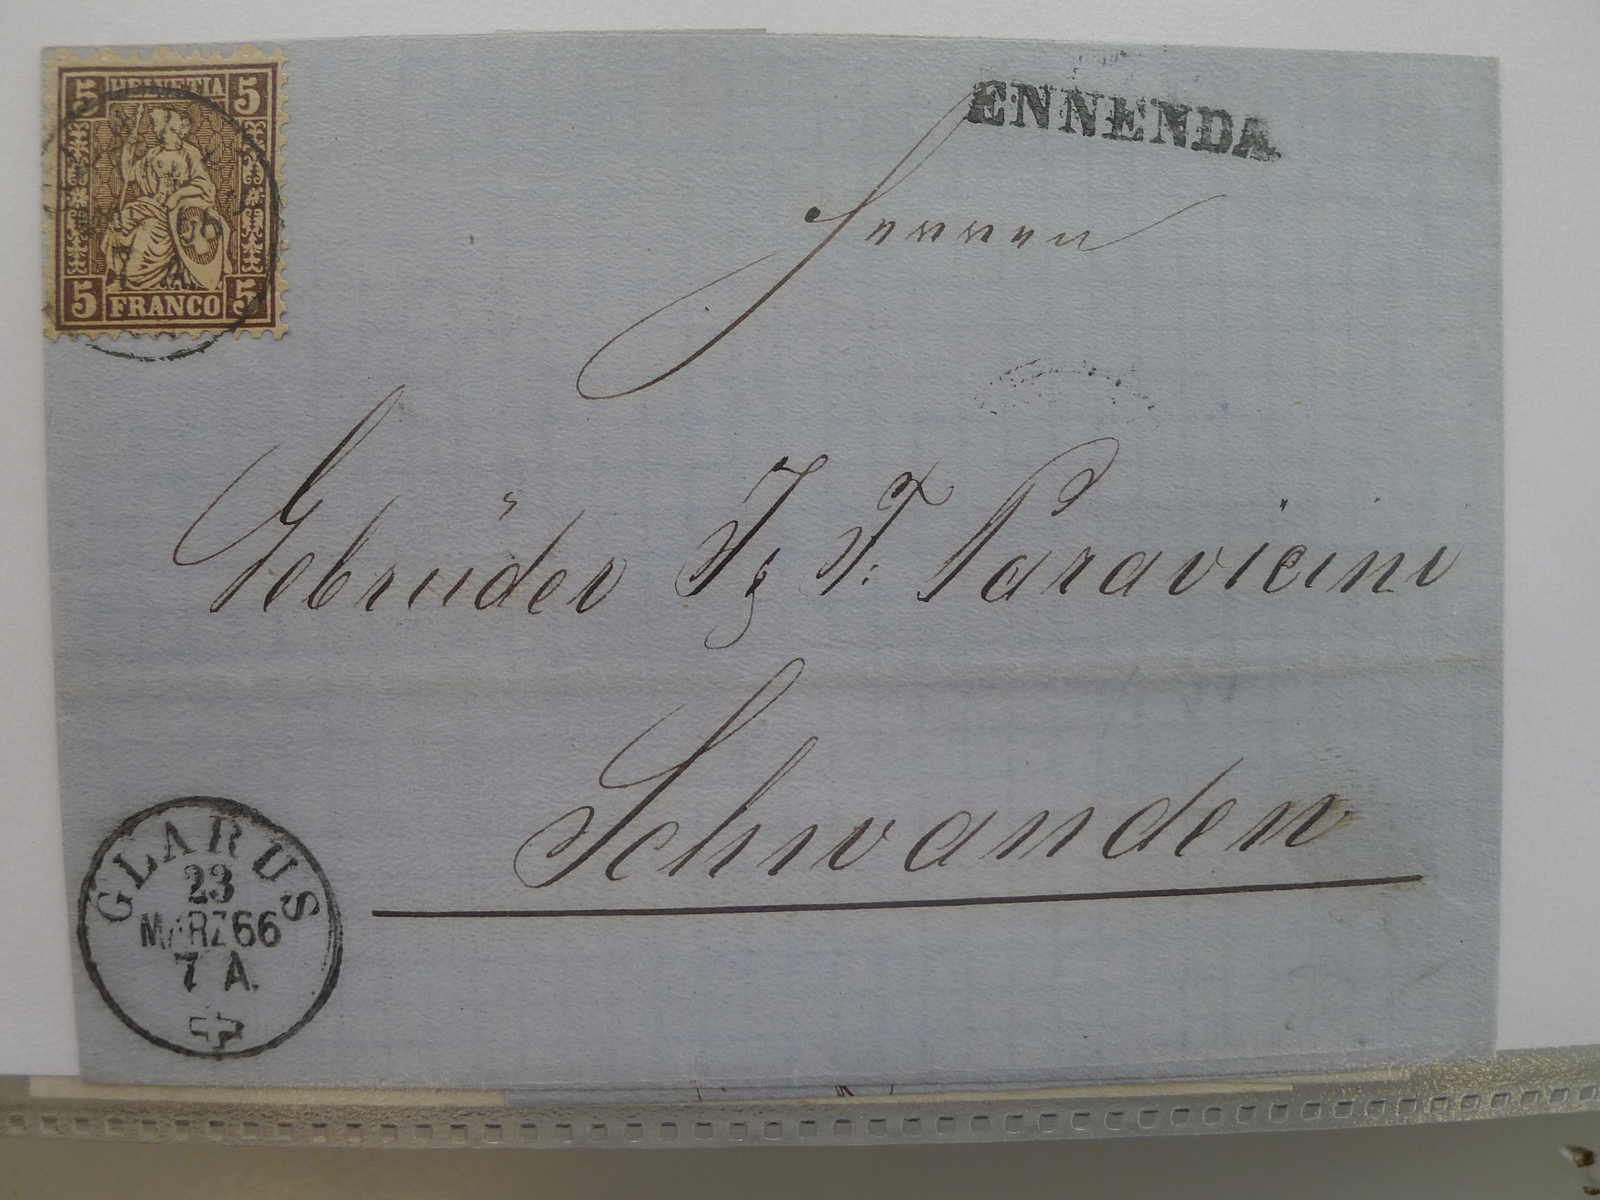 5 HELVETIA 5
5 FRANCO 5
ENNENDA
Herren
Gebrüder J. F. Paravicini
Schwanden
GLARUS
23
MÄRZ 66
7 A.